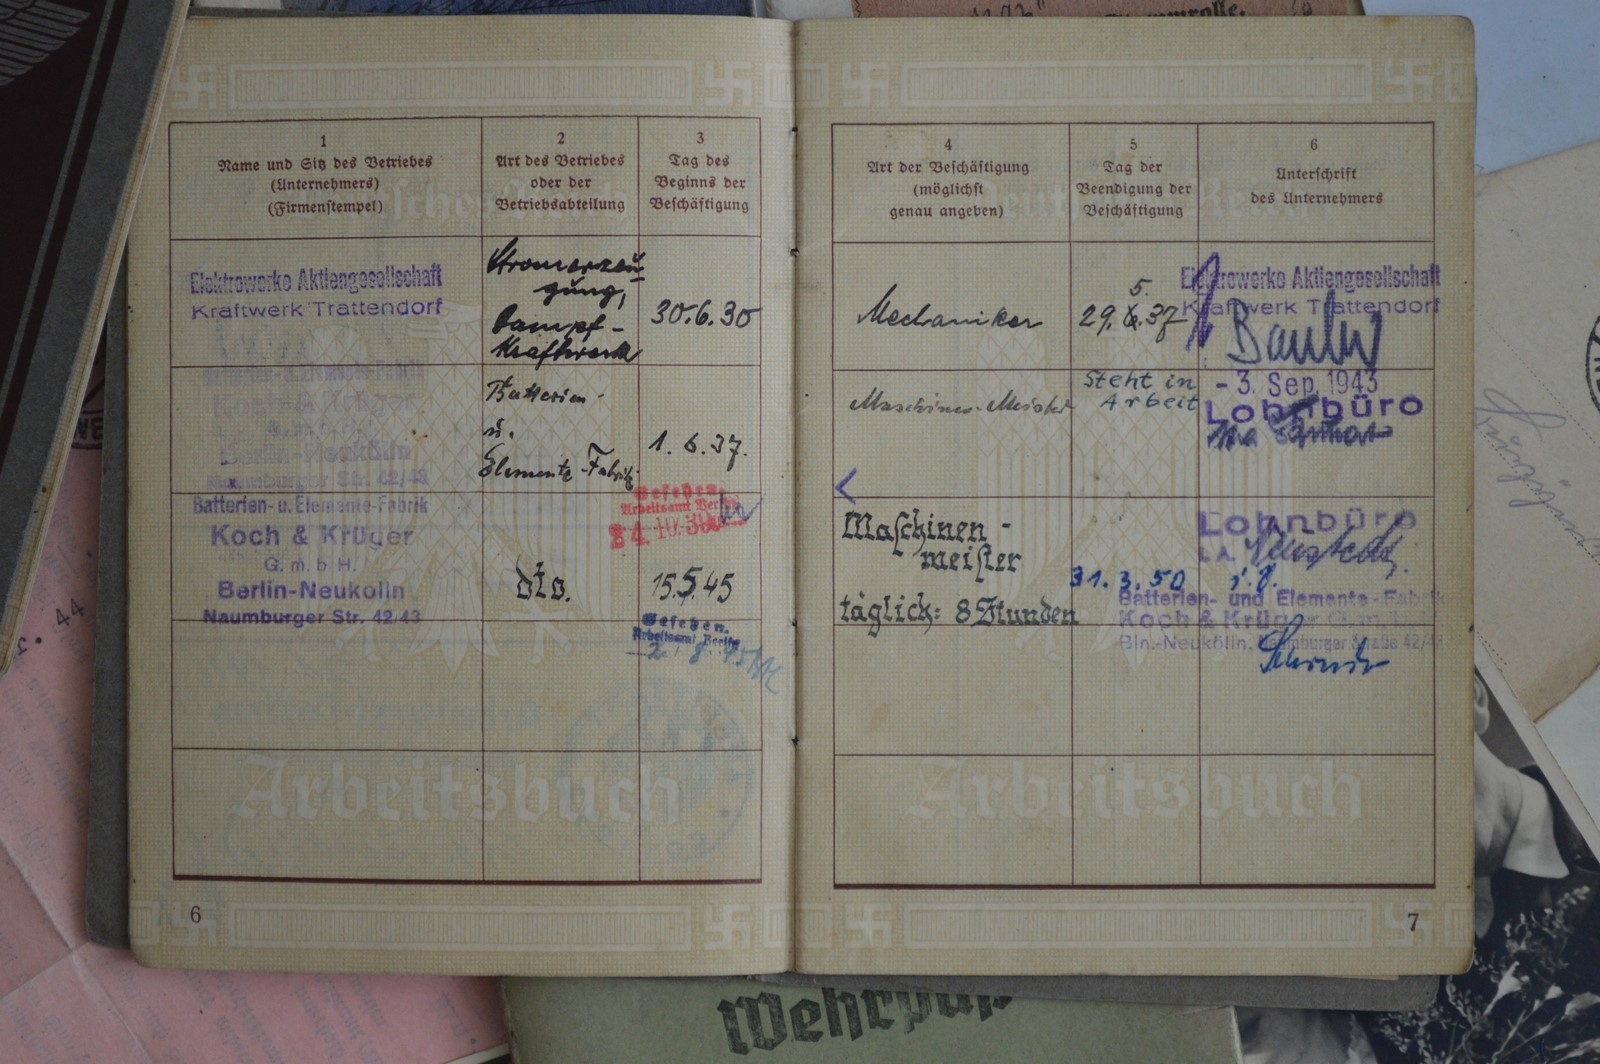 1
Name und Sitz des Betriebes
(Unternehmers)
(Firmenstempel)
2
Art des Betriebes
oder der
Betriebsabteilung
3
Tag des
Beginns der
Beschäftigung
Elektrowerke Aktiengesellschaft
Kraftwerk Trattendorf
Stromerzeu
gung,
Dampf-
Kraftwerk
30.6.30
Batterien- u. Elemente-Fabrik
Koch & Krüger
G.m.b.H.
Berlin-Neukölln
Naumburger Str. 42/43
Batterien-
u.
Elemente-Fabrik
1.6.37.
Gesehen.
Arbeitsamt Berlin
24.10.39
Batterien- u. Elemente-Fabrik
Koch & Krüger
G.m.b.H.
Berlin-Neukölln
Naumburger Str. 42/43
dto.
15.5.45
Gesehen.
Arbeitsamt Berlin
Arbeitsbuch
6
4
Art der Beschäftigung
(möglichst
genau angeben)
5
Tag der
Beendigung der
Beschäftigung
6
Unterschrift
des Unternehmers
Mechaniker
5.
29.6.37
Elektrowerke Aktiengesellschaft
Kraftwerk Trattendorf
Maschinen-Meister
Steht in
Arbeit
- 3. Sep. 1943
Lohnbüro
Maschinen-
meister
täglich: 8 Stunden
31.3.50
Lohnbüro
I.A.
Batterien- und Elemente-Fabrik
Koch & Krüger G.m.b.H.
Bln.-Neukölln, Naumburger Straße 42/43
Arbeitsbuch
7
Wehrpaß